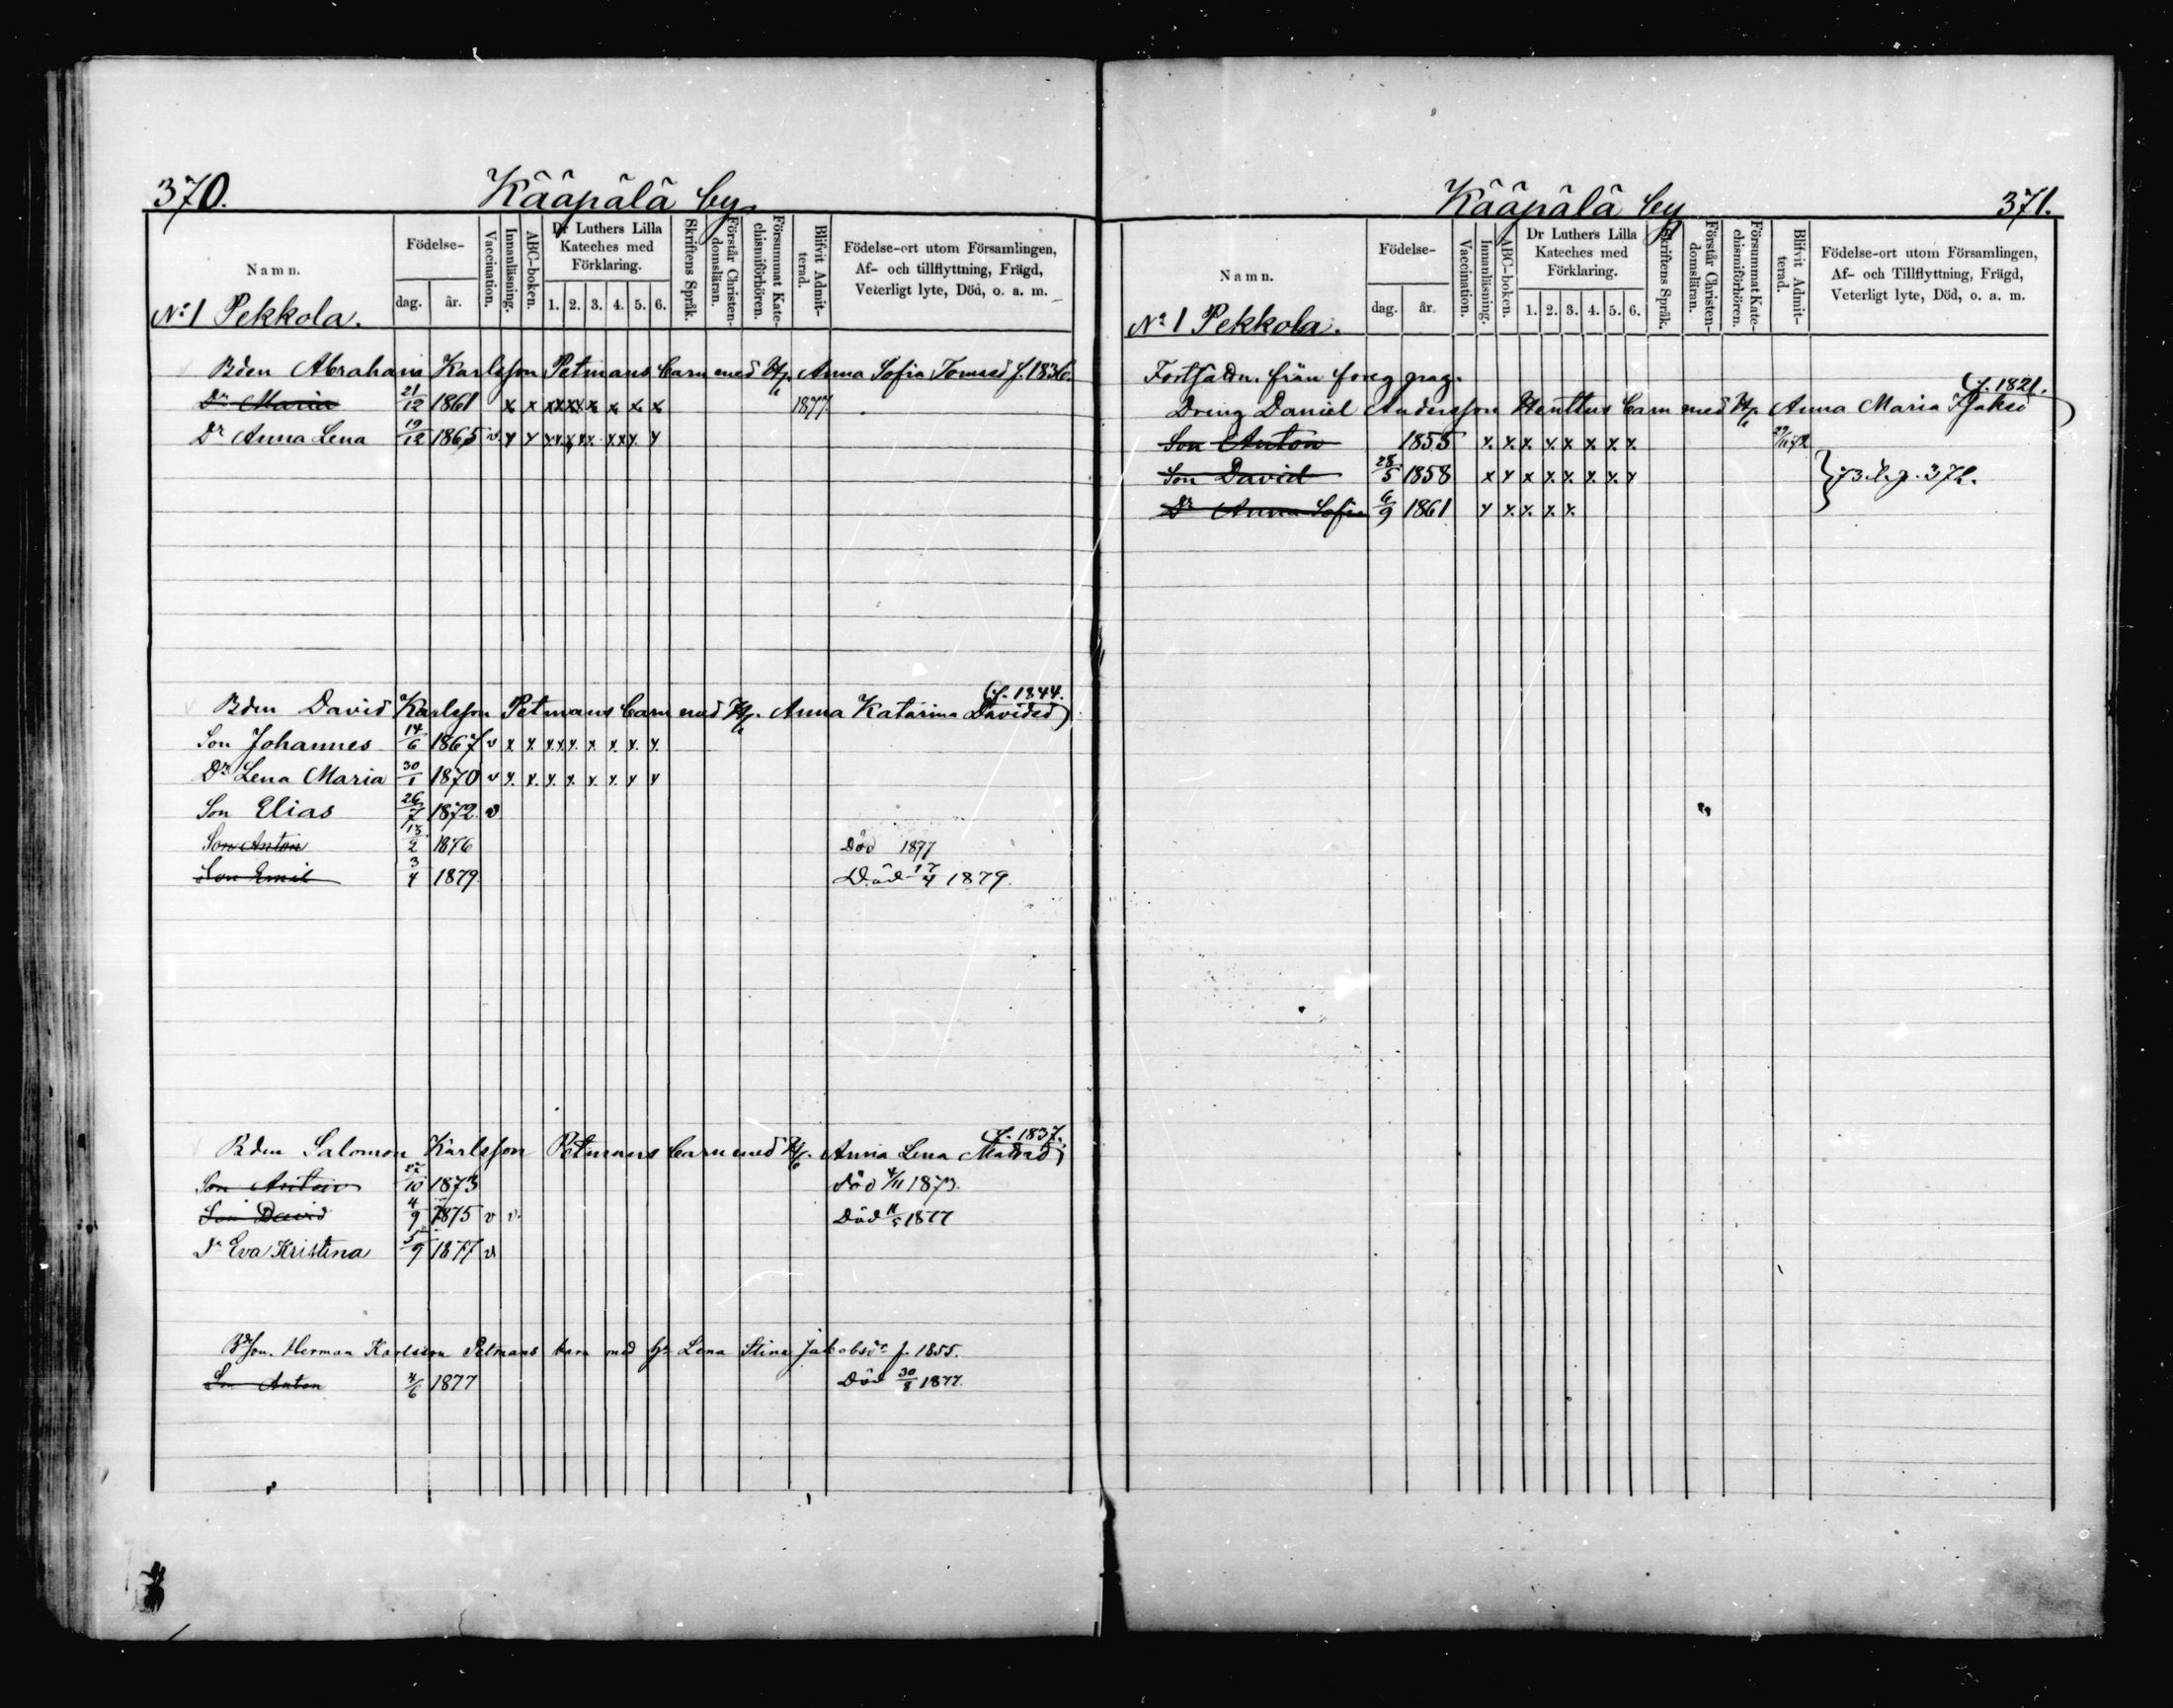 370. Kääpälä by
Namn.
Födelse-
dag. år.
Vaccination.
Innanläsning.
ABC-boken.
Dr Luthers Lilla Kateches med Förklaring.
1. 2. 3. 4. 5. 6.
Skriftens Språk.
Förstår Christen-domsläran.
Försummat Kate-chismiförhören.
Blifvit Admit-terad.
Födelse-ort utom Församlingen, Af- och tillflyttning, Frägd, Veterligt lyte, Död, o. a. m.
No 1 Pekkola.
Bden Abraham Karlsson Petmans barn med H. Anna Sofia Tomasd f. 1836.
Dr Maria 21/12 1861 x x x x x x x x x x 1877
Dr Anna Lena 19/12 1865 v x x x x x x x x x x
(f. 1844.
Bden David Karlsson Petmans barn med H. Anna Katarina Davidsd)
Son Johannes 14/6 1867 v x x x x x x x x x
Dr Lena Maria 30/1 1870 v x x x x x x x x
Son Elias 26/7 1872 v
Son Anton 13/2 1876 Död 1877
Son Emil 3/4 1879. Död 17/4 1879.
(f. 1837.
Bden Salomon Karlsson Petmans barn med H. Anna Lena
Son Anton /10 1873 död 4/11 1873.
Son David 4/9 1875 v v. Död 11/5 1877
Dr Eva Kristina 5/9 1877 v
Herman Karlsson Petmans barn med H. Lena Stina Jakobsdr f. 1855.
Son Anton 4/6 1877 Död 30/8 1877.
Kääpälä by 371.
Namn.
Födelse-
dag. år.
Vaccination.
Innanläsning.
ABC-boken.
Dr Luthers Lilla Kateches med Förklaring.
1. 2. 3. 4. 5. 6.
Skriftens Språk.
Förstår Christen-domsläran.
Försummat Kate-chismiförhören.
Blifvit Admit-terad.
Födelse-ort utom Församlingen, Af- och Tillflyttning, Frägd, Veterligt lyte, Död, o. a. m.
No 1 Pekkola.
Fortsättn. från föreg pag.
(f. 1821.
Dreng Daniel Andersson Henttus barn med H. Anna Maria
Son Anton 1855 x x x x x x x x
Son David 28/5 1858 x x x x x x x x } p. 372.
Dr Anna Sofia 6/9 1861 x x x x x